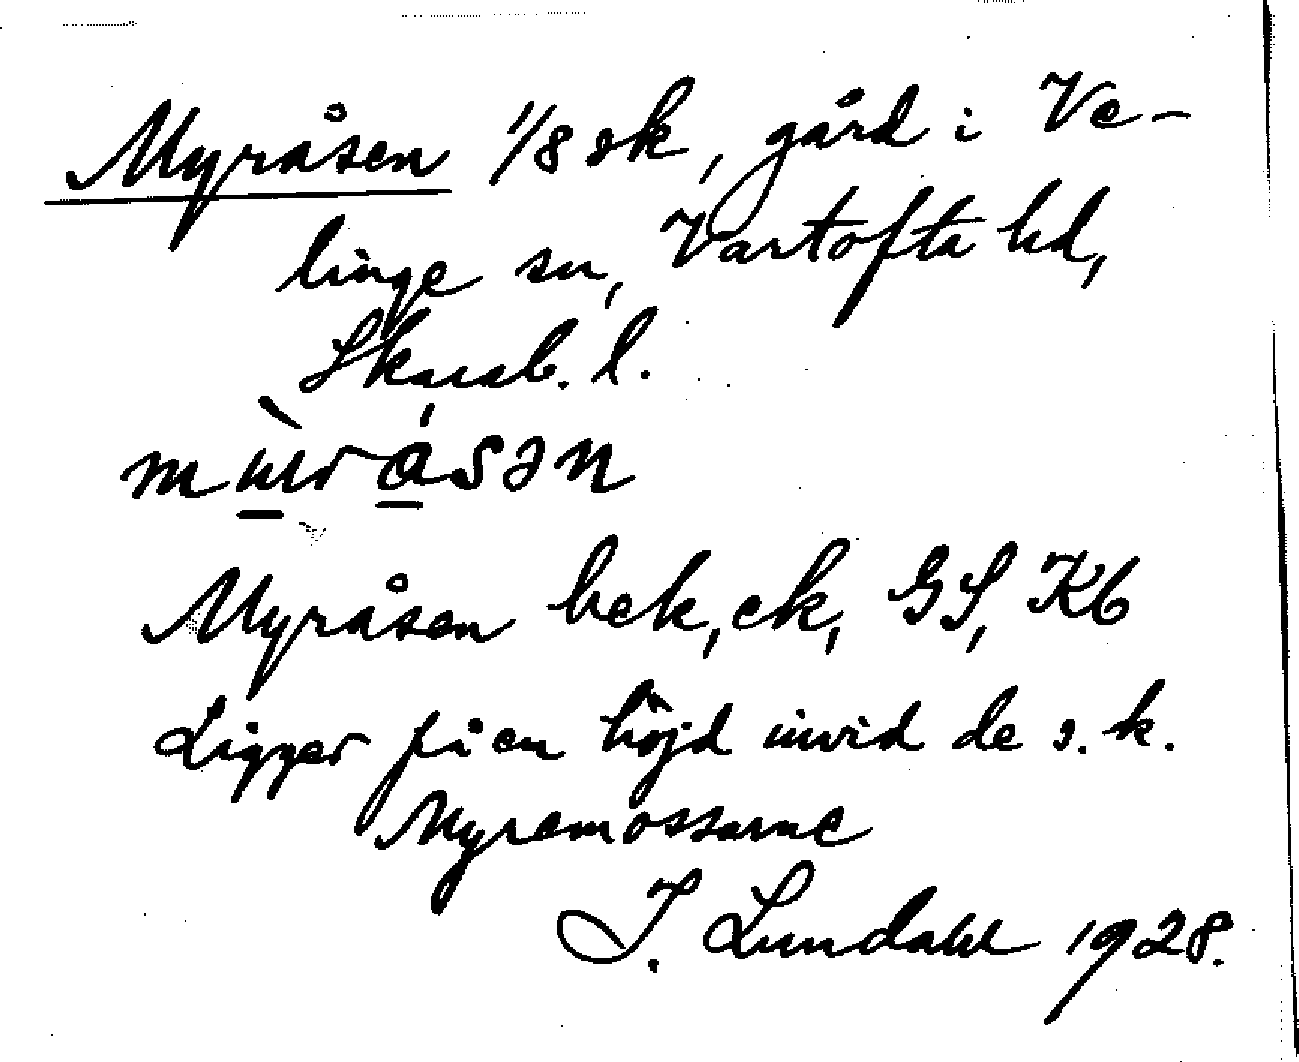 Myråsen 1/8 sk, gård i Ve-
linge sn, Vartofta hd,
Skarab. l.
mù̱rá̱sən
Myråsen bek, ek, GS, Kb
Ligger på en höjd invid de s. k.
Myremossarne
I. Lundahl 1928.